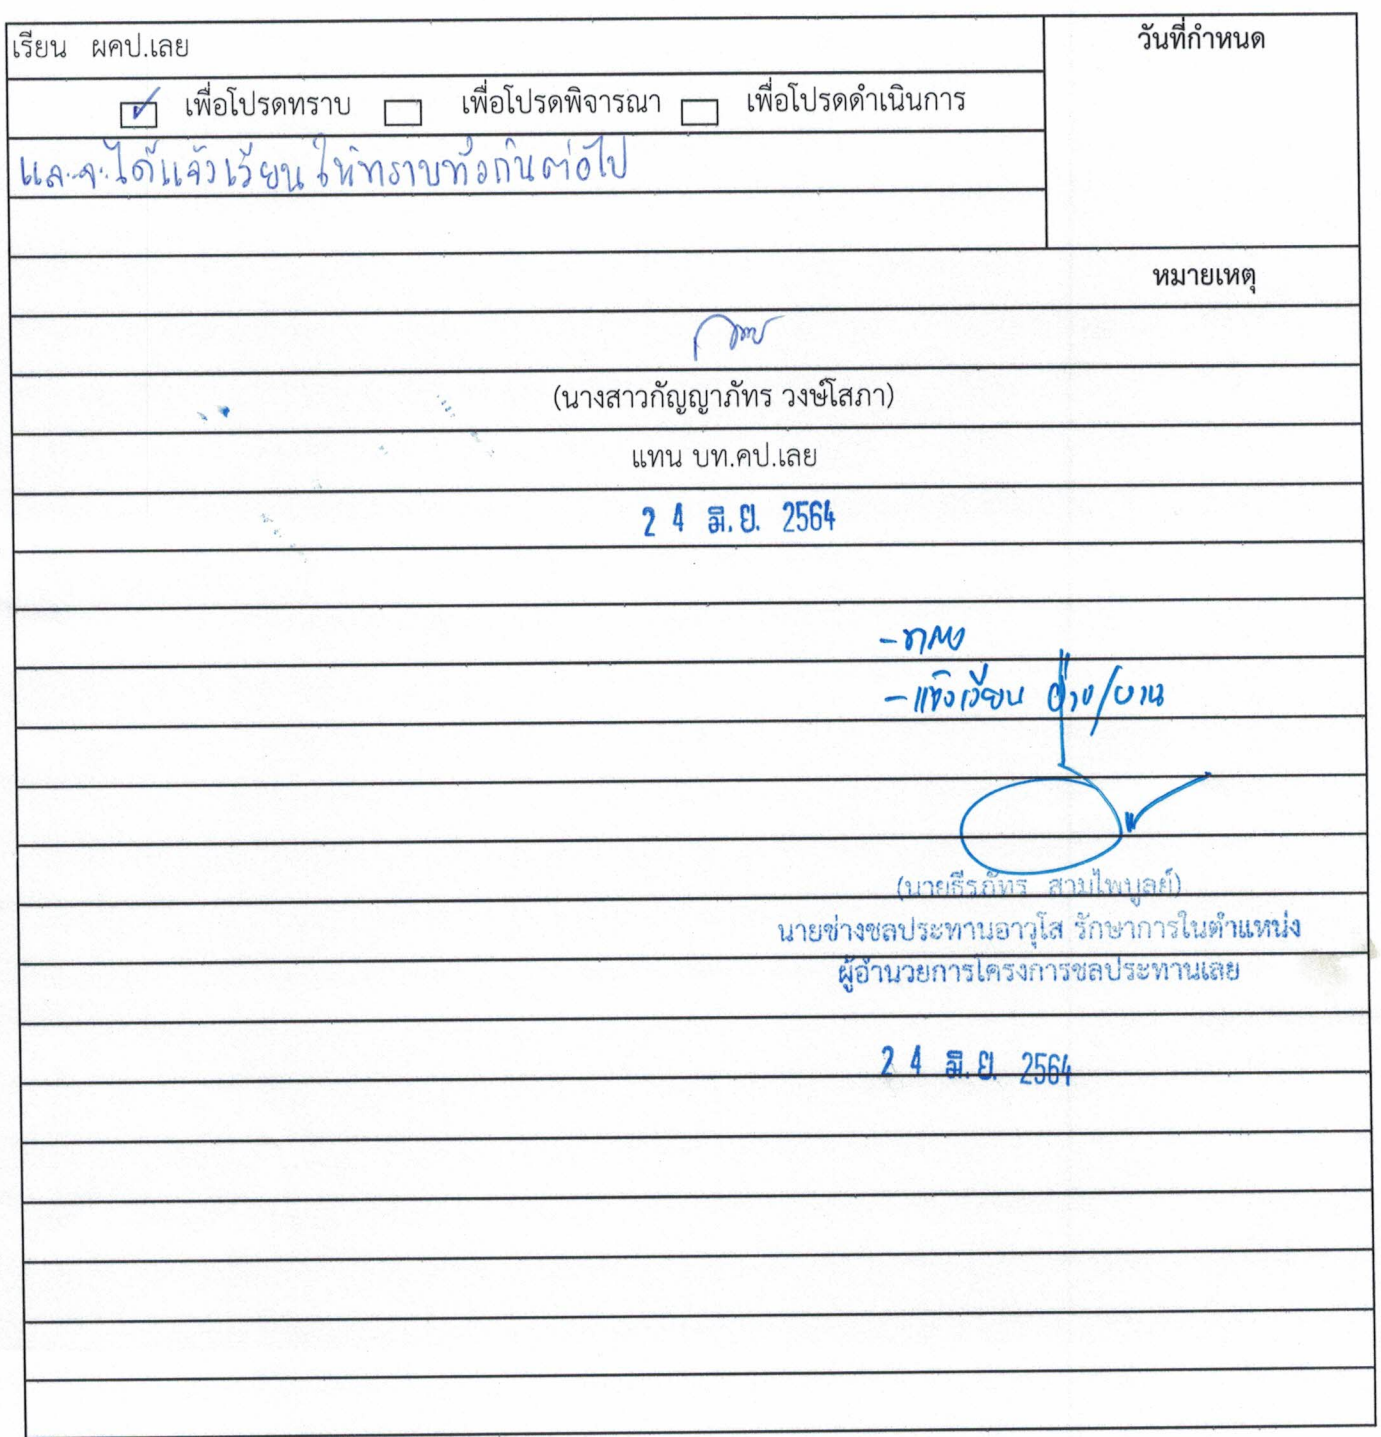 เรียน ผคป.เลย
วันที่กำหนด
เพื่อโปรดทราบ เพื่อโปรดพิจารณา เพื่อโปรดดำเนินการ
และจะได้แจ้งเวียนให้ทราบทั่วกันต่อไป
หมายเหตุ
(นางสาวกัญญาภัทร วงษ์โสภา)
แทน บท.คป.เลย
2 4 มิ.ย. 2564
- ทราบ
- แจ้งเวียน ฝ่าย/งาน
(นายธีรภัทร สามไพบูลย์)
นายช่างชลประทานอาวุโส รักษาการในตำแหน่ง
ผู้อำนวยการโครงการชลประทานเลย
2 4 มิ.ย. 2564